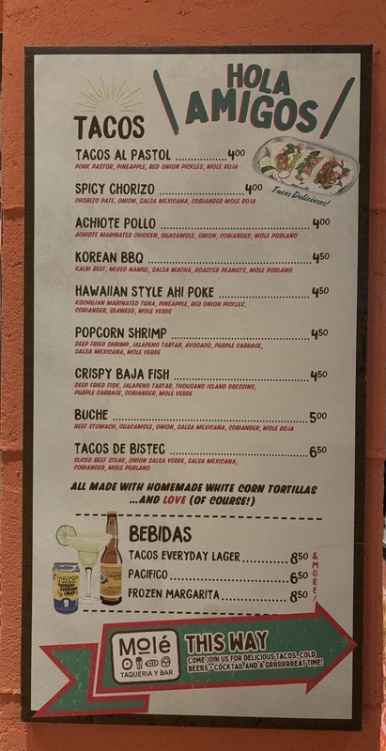 HOLA
AMIGOS
TACOS
TACOS AL PASTOL ............... 4⁰⁰
PORK PASTOR, PINEAPPLE, RED ONION PICKLES, MOLE ROJA
Tacos Deliciosos!
SPICY CHORIZO ............... 4⁰⁰
CHORIZO PATE, ONION, SALSA MEXICANA, CORIANDER MOLE ROJA
ACHIOTE POLLO ............... 4⁰⁰
ACHIOTE MARINATED CHICKEN, GUACAMOLE, ONION, CORIANDER, MOLE POBLANO
KOREAN BBQ ............... 4⁵⁰
KALBI BEEF, MIXED NAMUL, SALSA MACHA, ROASTED PEANUTS, MOLE POBLANO
HAWAIIAN STYLE AHI POKE ............... 4⁵⁰
MARINATED TUNA, PINEAPPLE, RED ONION PICKLES,
CORIANDER, SEAWEED, MOLE VERDE
POPCORN SHRIMP ............... 4⁵⁰
DEEP FRIED SHRIMP, JALAPENO TARTAR, AVOCADO, PURPLE CABBAGE,
SALSA MEXICANA, MOLE VERDE
CRISPY BAJA FISH ............... 4⁵⁰
DEEP FRIED FISH, JALAPENO TARTAR, THOUSAND ISLAND DRESSING,
PURPLE CABBAGE, CORIANDER, MOLE VERDE
BUCHE ............... 5⁰⁰
BEEF STOMACH, GUACAMOLE, ONION, SALSA MEXICANA, CORIANDER, MOLE ROJA
TACOS DE BISTEC ............... 6⁵⁰
SLICED BEEF STEAK, ONION SALSA VERDE, SALSA MEXICANA,
CORIANDER, MOLE POBLANO
ALL MADE WITH HOMEMADE WHITE CORN TORTILLAS
...AND LOVE (OF COURSE!)
BEBIDAS
TACOS EVERYDAY LAGER ............... 8⁵⁰
PACIFICO ............... 6⁵⁰
FROZEN MARGARITA ............... 8⁵⁰
& MORE!
Molé
TAQUERIA Y BAR
THIS WAY
COME JOIN US FOR DELICIOUS TACOS, COLD
BEERS - COCKTAIL AND A GRRRRRREAT TIME!